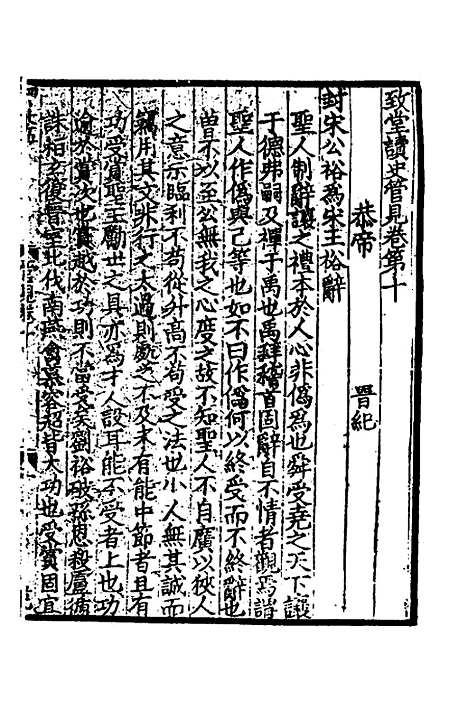 致堂讀史管見卷第十
恭帝　晉紀
封宋公裕爲宋王裕辭
聖人制辭讓之禮本於人心非僞爲也舜受堯之天下讓
于德弗嗣及禪于禹也禹拜稽首固辭自不情者觀焉謂
聖人作僞與己等也如不曰作僞何以終受而不終辭也
豈不以至公無我之心度之故不知聖人不自廣以狹人
之意示臨利不苟從升高不苟受之法也小人無其誠而
竊用其文非行之太過則處之不及未有能中節者且有
功受賞聖王勵世之具亦爲才人設耳能不受者上也功
逾於賞次也賞越於功則不當受矣劉裕破孫恩殺盧循
誅桓玄復晉室北伐南燕禽慕容超皆大功也受賞固宜